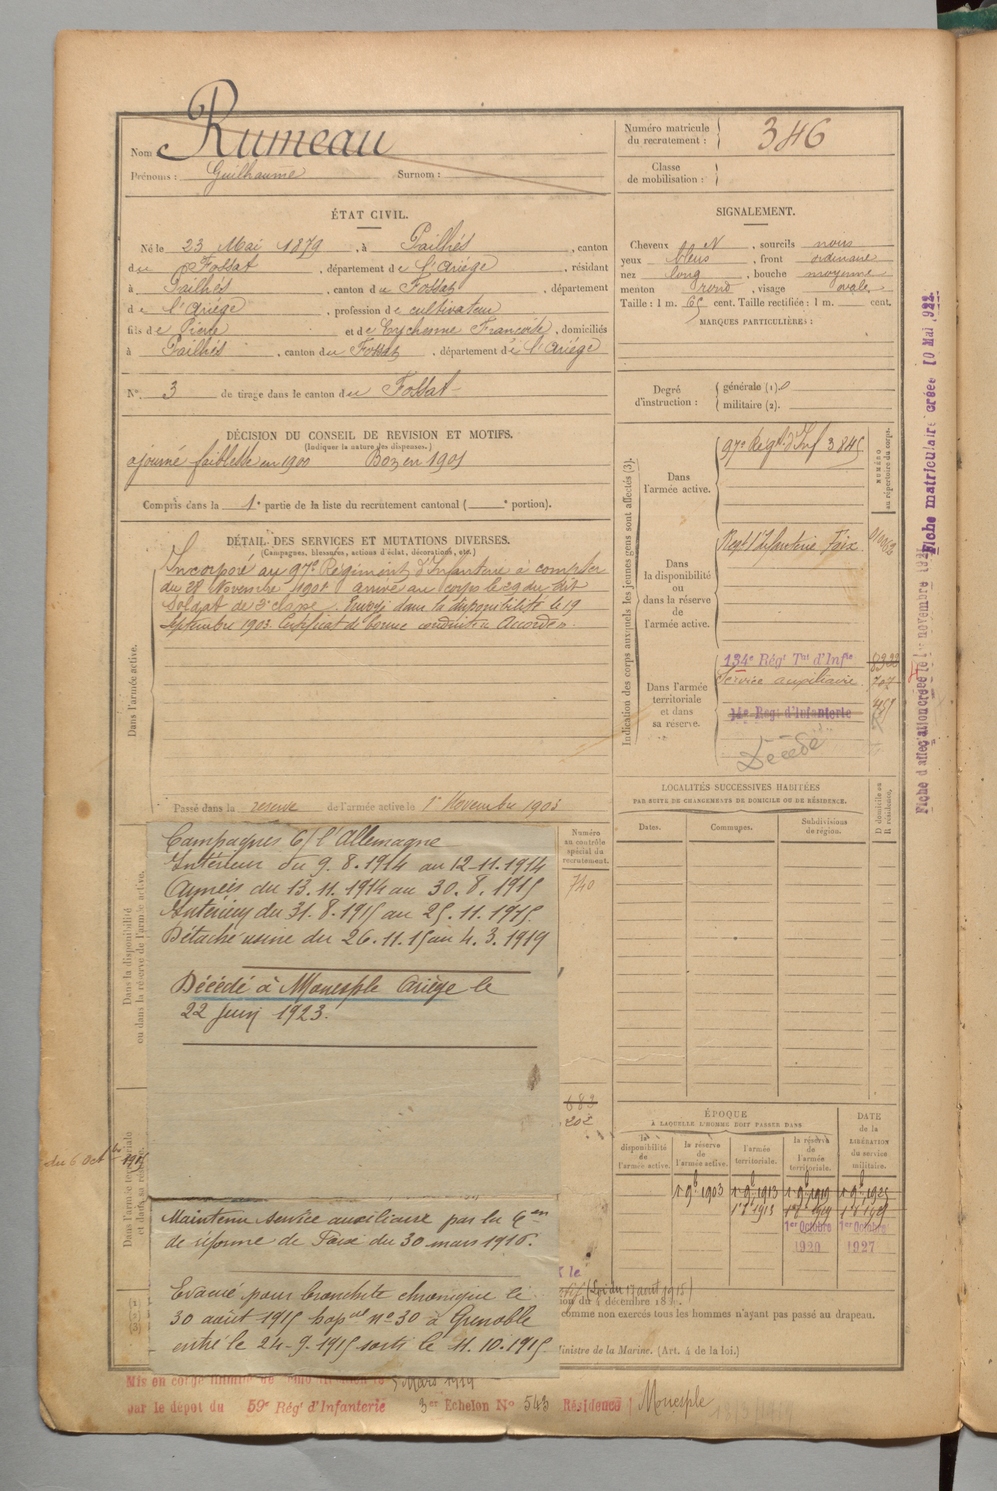 Nom Rumeau
Prénoms : Guilhaume Surnom :
Numéro matricule du recrutement : 346
Classe de mobilisation :
ÉTAT CIVIL.
Né le 23 Mai 1879, à Pailhés, canton
du Fossat, département de l'Ariége, résidant
à Pailhés, canton du Fossat, département
de l'Ariége, profession de cultivateur
fils de et de Eychenne Françoise, domiciliés
à Pailhés, canton du Fossat, département de l'Ariége
N° 3 de tirage dans le canton du Fossat
SIGNALEMENT.
Cheveux N, sourcils noirs
yeux bleus, front ordinaire
nez long, bouche moyenne
menton rond, visage ovale
Taille : 1 m. 65 cent. Taille rectifiée : 1 m. cent.
MARQUES PARTICULIÈRES :
Degré d'instruction : générale (1).
militaire (2).
DÉCISION DU CONSEIL DE REVISION ET MOTIFS.
(Indiquer la nature des dispenses.)
ajourné faiblesse en 1900 Bon en 1901
Compris dans la 1e partie de la liste du recrutement cantonal ( e portion).
DÉTAIL DES SERVICES ET MUTATIONS DIVERSES.
(Campagnes, blessures, actions d'éclat, décorations, etc.)
Incorporé au 97e Régiment d'Infanterie à compter
du 28 Novembre 1901 arrivé au corps le 29 du dit
Soldat de 2e classe. Envoyé dans la disponibilité le 19
Septembre 1903 Certificat de bonne conduite Accordé
Dans l'armée active.
Passé dans la réserve de l'armée active le 1er Novembre 1903
Indication des corps auxquels les jeunes gens sont affectés (3).
NUMÉRO au répertoire du corps.
Dans l'armée active.
97e Régt d'Inf 3845
Dans la disponibilité ou dans la réserve de l'armée active.
Régt d'Infanterie Foix
Dans l'armée territoriale et dans sa réserve.
134e Régt Tal d'Infie
Service auxiliaire 707
14e Régt d'Infanterie
Décédé
LOCALITÉS SUCCESSIVES HABITÉES
PAR SUITE DE CHANGEMENTS DE DOMICILE OU DE RÉSIDENCE.
Dates. Communes. Subdivisions de région. D domicile ou R résidence.
Numéro au contrôle spécial du recrutement.
740
Dans la disponibilité ou dans la réserve de l'armée active.
Campagnes c/ l'Allemagne
Intérieur du 9.8.1914 au 12-11.1914
Armées du 13.11.1914 au 30.8.1915
Intérieur du 31.8.1915 au 25.11.1915
Détaché usine du 26.11.15 au 4.3.1919
Décédé à Monesple Ariège le
22 Juin 1923.
683
202
du 6 Octbre 1915
Maintenu service auxiliaire par la Con
de réforme de Foix du 30 mars 1916.
Evacué pour bronchite chronique le
30 août 1915 hopal n° 30 à Grenoble
entré le 24-9-1915 sorti le 11.10.1915
ÉPOQUE
À LAQUELLE L'HOMME DOIT PASSER DANS
la disponibilité de l'armée active. la réserve de l'armée active. l'armée territoriale. la réserve de l'armée territoriale.
DATE de la LIBÉRATION du service militaire.
1er 9b 1903 1er 9b 1913 1er 9b 1919 1er 9b 1925
1er Octobre 1920 1er Octobre 1927
(Loi du 17 août 1915)
comme non exercés tous les hommes n'ayant pas passé au drapeau.
Ministre de la Marine. (Art. 4 de la loi.)
5 Mars 1919
par le dépôt du 59e Régt d'Infanterie 3er Echelon No 543 Résidence Monesple
Fiche matriculaire créée 10 Mai 922